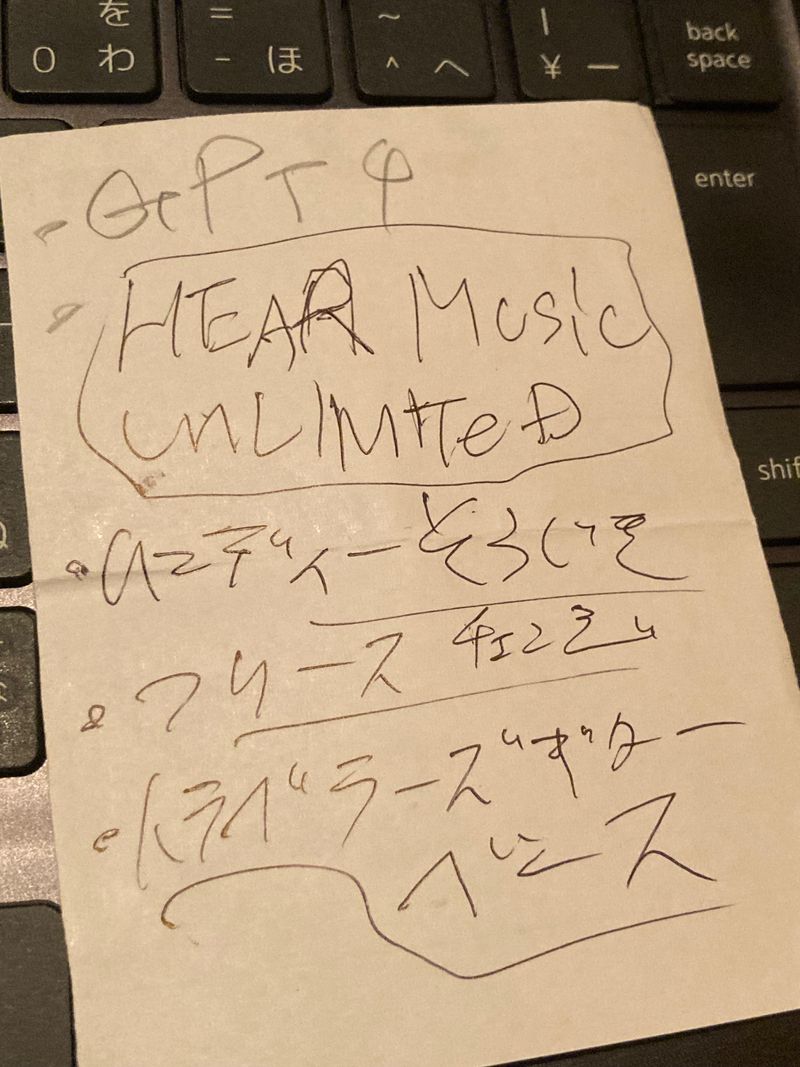 を
0 わ
=
- ほ
~
^ へ
|
¥ ー
back
space
enter
shif
・GPT 4
HEAR Music
UNLIMITED
・ハンディーそうじき
・フリース
・トラベラーズギター
ベース